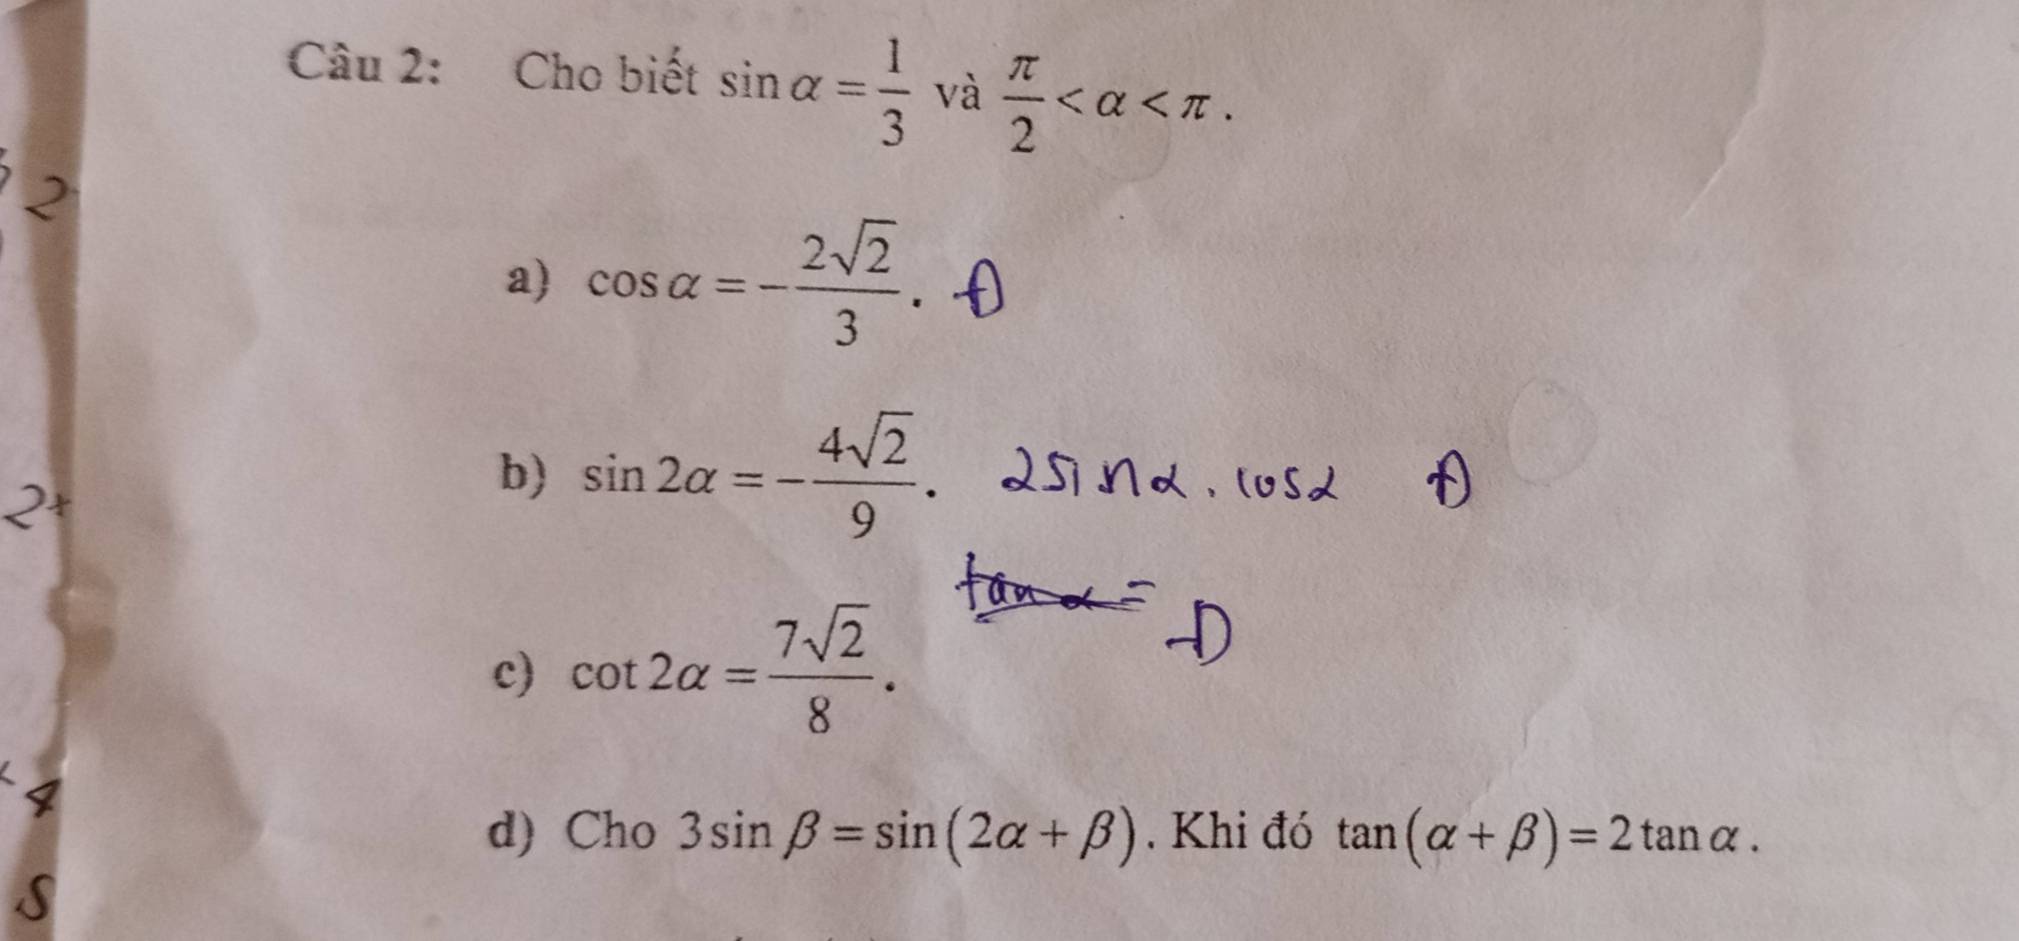 Câu 2: Cho biết sin α = 1/3 và π/2 < α < π.
2
a) cos α = -2√2/3. Đ
b) sin 2α = -4√2/9. 2sinα.cosα Đ
2+
tanα =
c) cot 2α = 7√2/8. Đ
4
d) Cho 3 sin β = sin(2α + β). Khi đó tan(α + β) = 2 tan α.
S